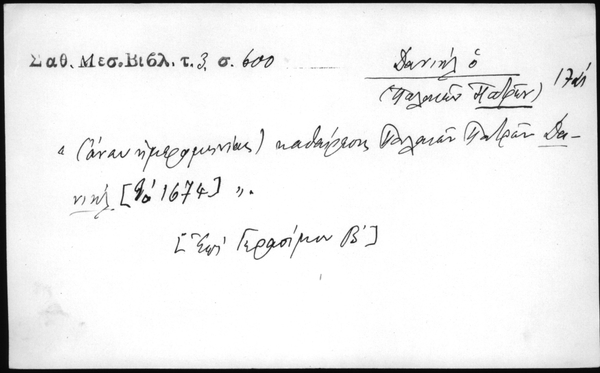 Σαθ. Μεσ. Βιβλ. τ. 3, σ. 600
Δανιήλ ὁ
(Παλαιῶν Πατρῶν)
« (ἄνευ ἡμερομηνίας) καθαίρεσις Παλαιῶν Πατρῶν Δα-
νιήλ [τῷ 1674] ».
[Ἐπὶ Γερασίμου Β']